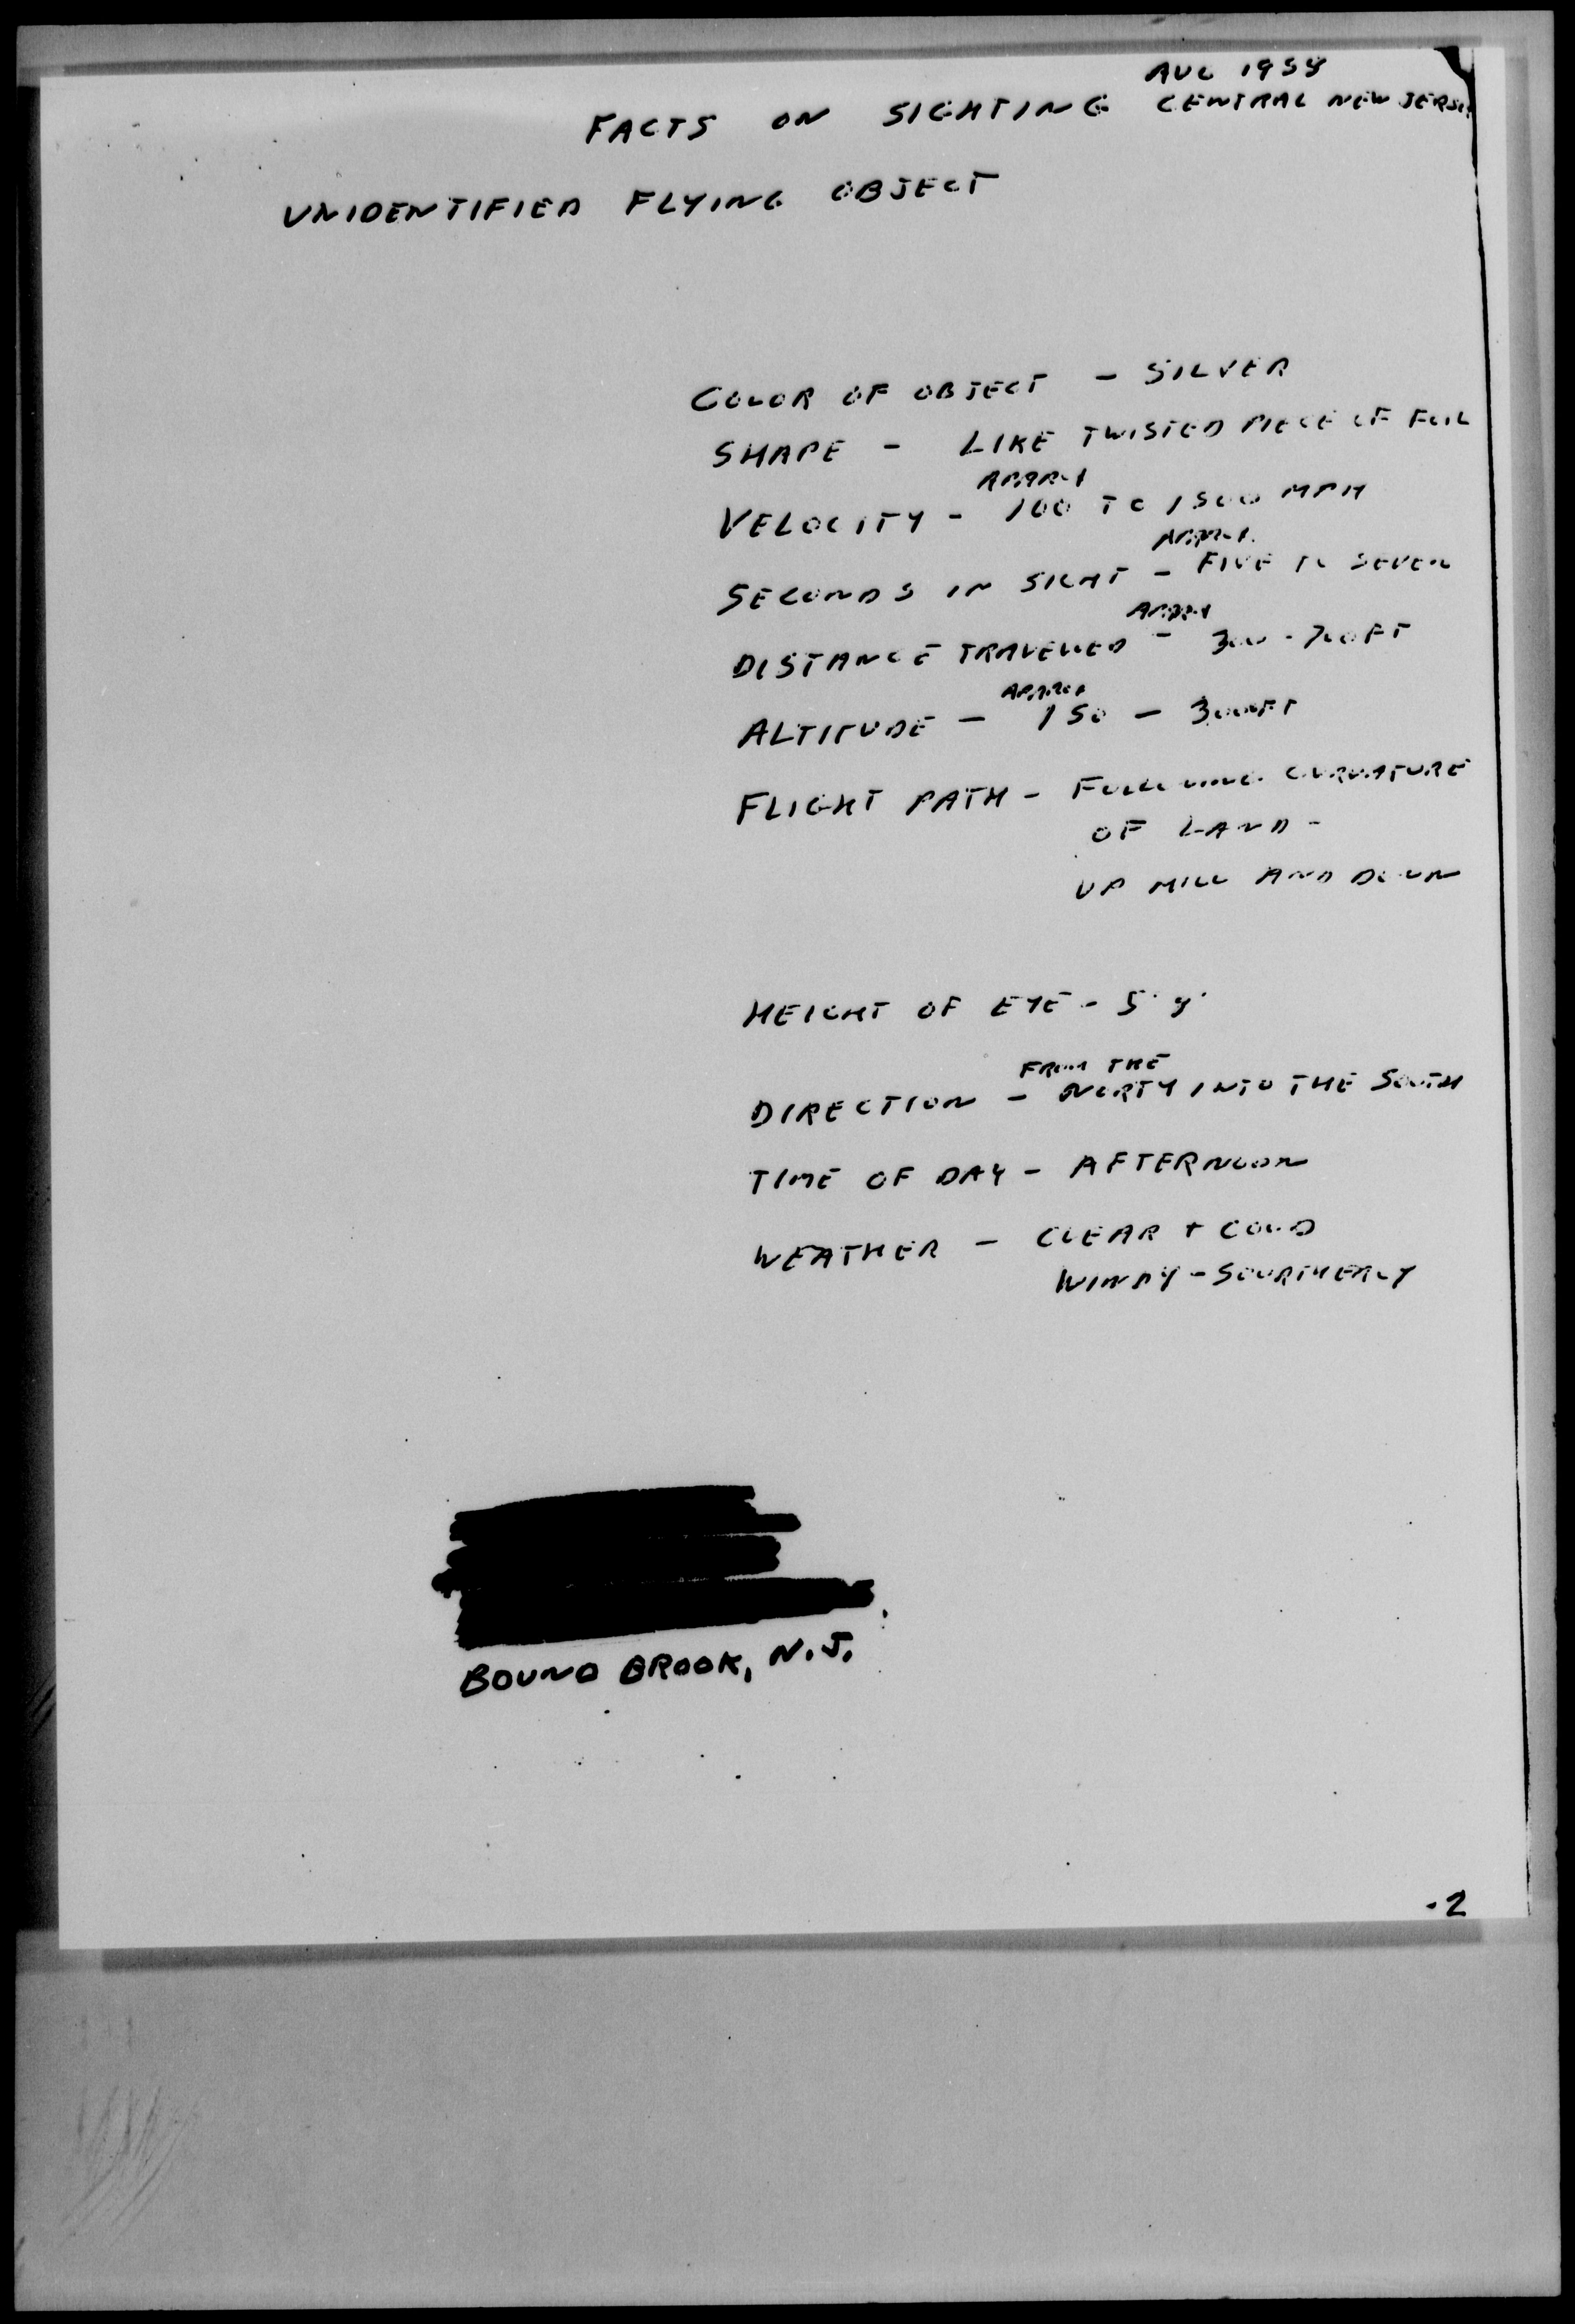 AUG 1958
FACTS ON SIGHTING CENTRAL NEW JERSEY
UNIDENTIFIED FLYING OBJECT
COLOR OF OBJECT - SILVER
SHAPE - LIKE TWISTED PIECE OF FOIL
APPROX
VELOCITY - 100 TO 1500 MPH
APPROX.
SECONDS IN SIGHT - FIVE TO SEVEN
APPROX
DISTANCE TRAVELLED - 300 - 700 FT
APPROX
ALTITUDE - 150 - 300 FT
FLIGHT PATH - FOLLOWING CURVATURE
OF LAND -
UP HILL AND DOWN
HEIGHT OF EYE -
FROM THE
DIRECTION - NORTH INTO THE SOUTH
TIME OF DAY - AFTERNOON
WEATHER - CLEAR + COLD
WINDY - SOURTHERLY
BOUND BROOK, N.J.
-2